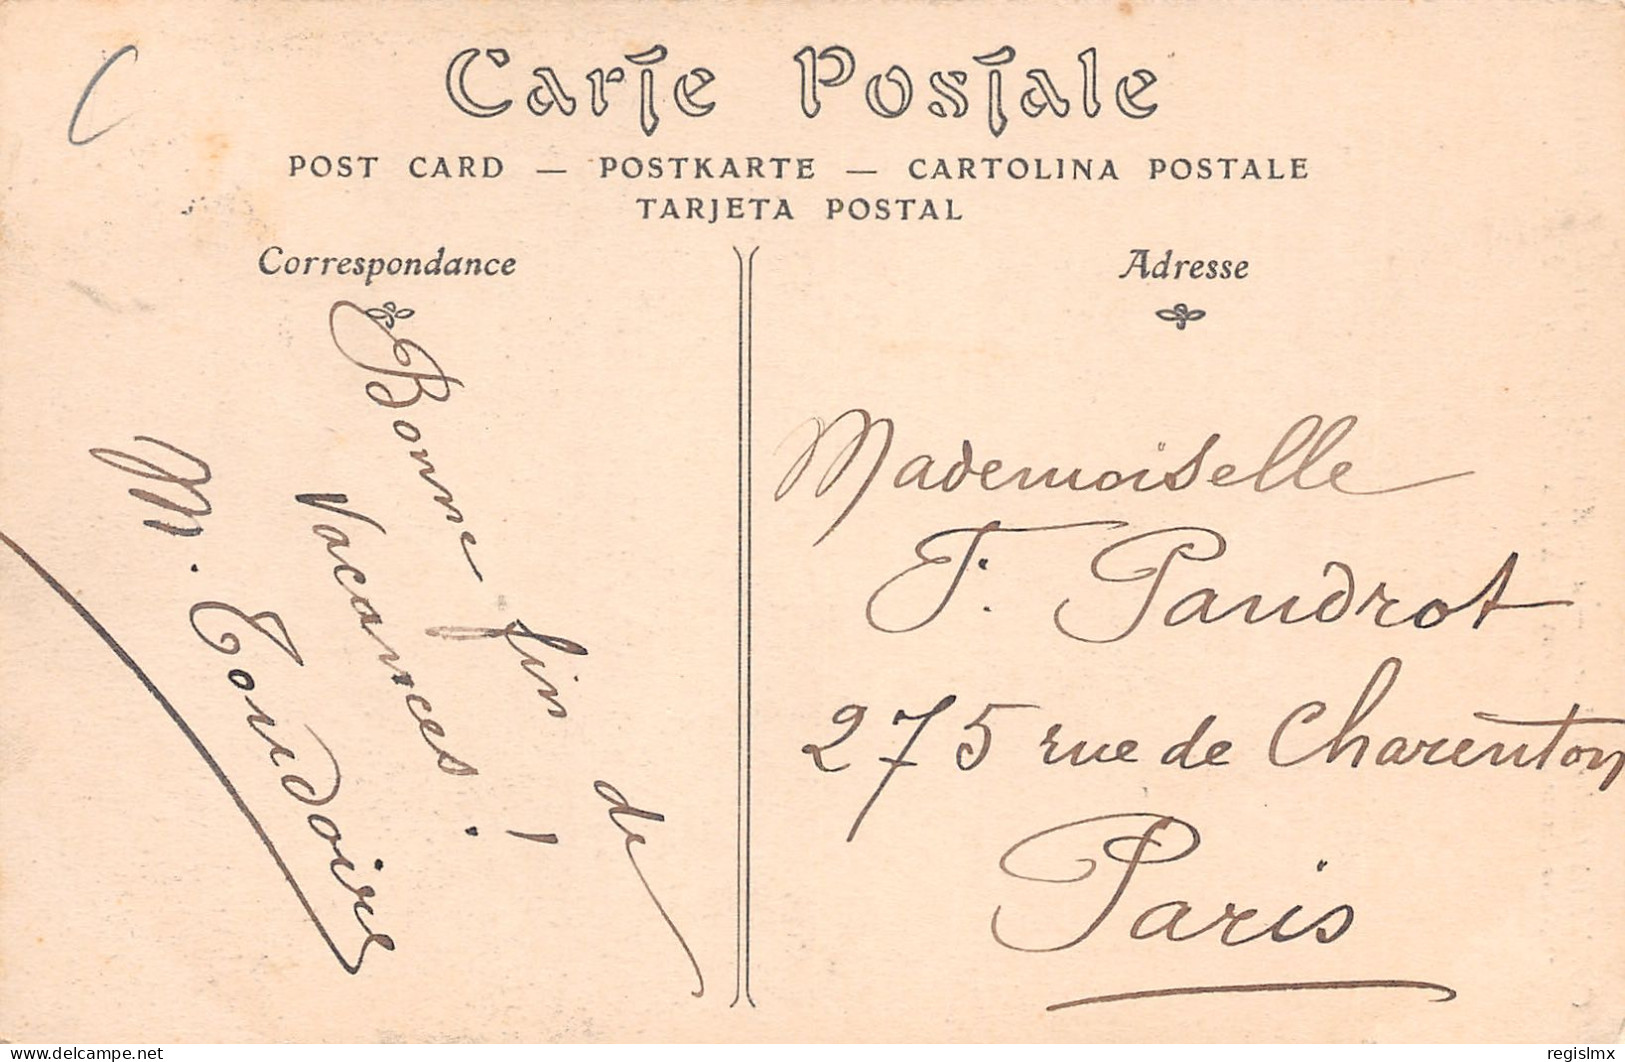 Carte Postale
POST CARD — POSTKARTE — CARTOLINA POSTALE
TARJETA POSTAL
Correspondance
Bonne fin de
Vacances !
M. Toudoire
Adresse
Mademoiselle
F. Paudrot
275 rue de Charenton
Paris
delcampe.net
regislmx